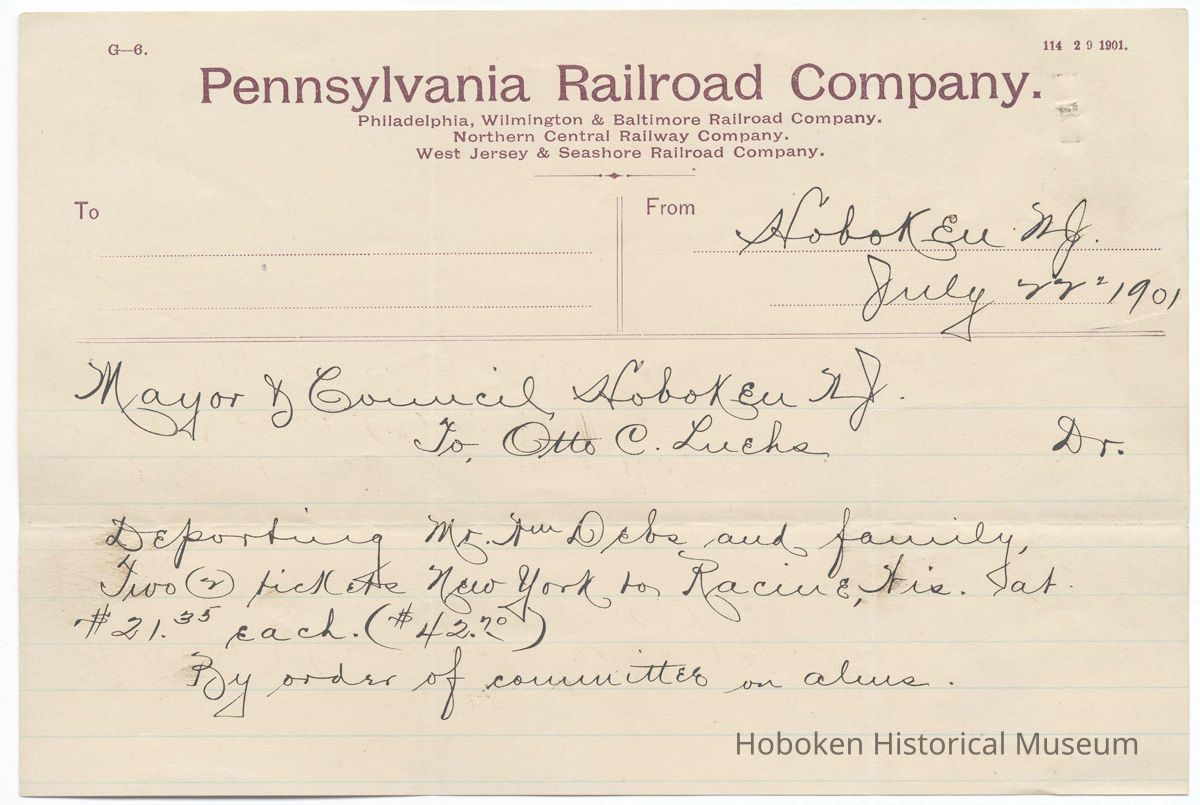 G—6.
114 2 9 1901.
Pennsylvania Railroad Company.
Philadelphia, Wilmington & Baltimore Railroad Company.
Northern Central Railway Company.
West Jersey & Seashore Railroad Company.
To
From
Hoboken NJ.
July 22" 1901
Mayor & Council Hoboken NJ.
To, Otto C. Luehs Dr.
Deporting Mr. Wm Debs and family,
Two (2) tickets New York to Racine, Wis. at
$21.35 each. ($42.70)
By order of committee on alms.
Hoboken Historical Museum